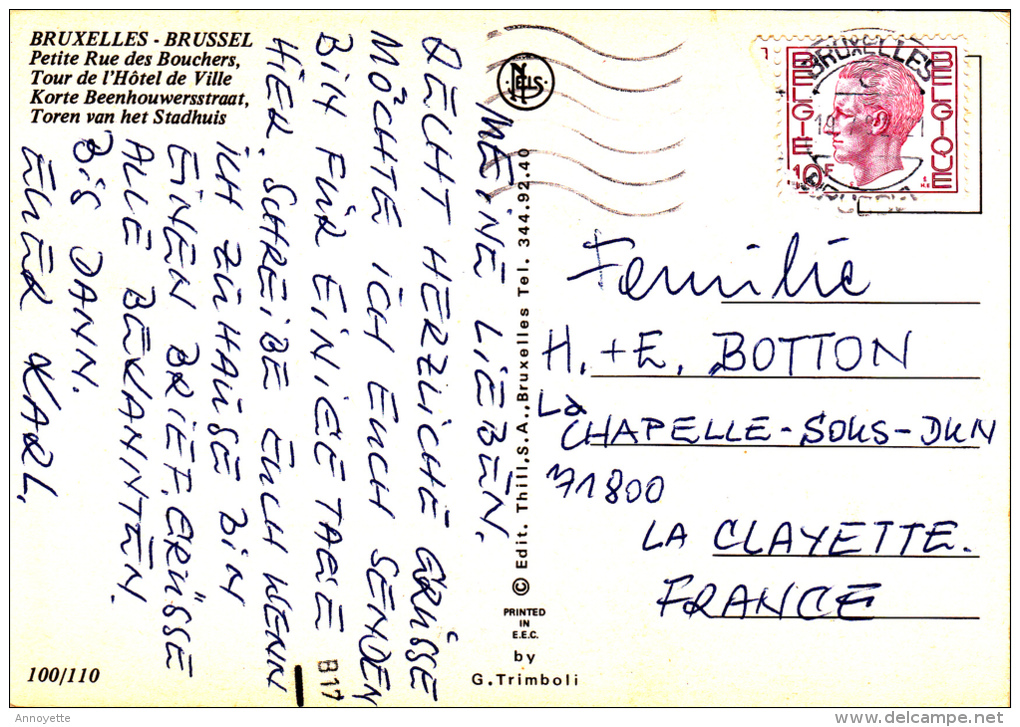 BRUXELLES - BRUSSEL
Petite Rue des Bouchers,
Tour de l'Hôtel de Ville
Korte Beenhouwersstraat,
Toren van het Stadhuis
MEINE LIEBEN.
RECHT HERZLICHE GRÜSSE
MÖCHTE ICH EUCH SENDEN
BIN FÜR EINIGE TAGE
HIER. SCHREIBE EUCH WENN
ICH ZUHAUSE BIN
EINEN BRIEF. GRÜSSE
ALLE BEKANNTEN.
BIS DANN.
EUER KARL.
100/110
NELS
© Edit. Thill, S.A., Bruxelles Tel. 344.92.40
PRINTED
IN
E.E.C.
by
G. Trimboli
B17
BRUXELLES
BELGIE
BELGIQUE
10F
BRUSSEL
Familie
H. + E. BOTTON
La
CHAPELLE-SOUS-DUN
71800
LA CLAYETTE.
FRANCE
Annoyette
delcampe.net